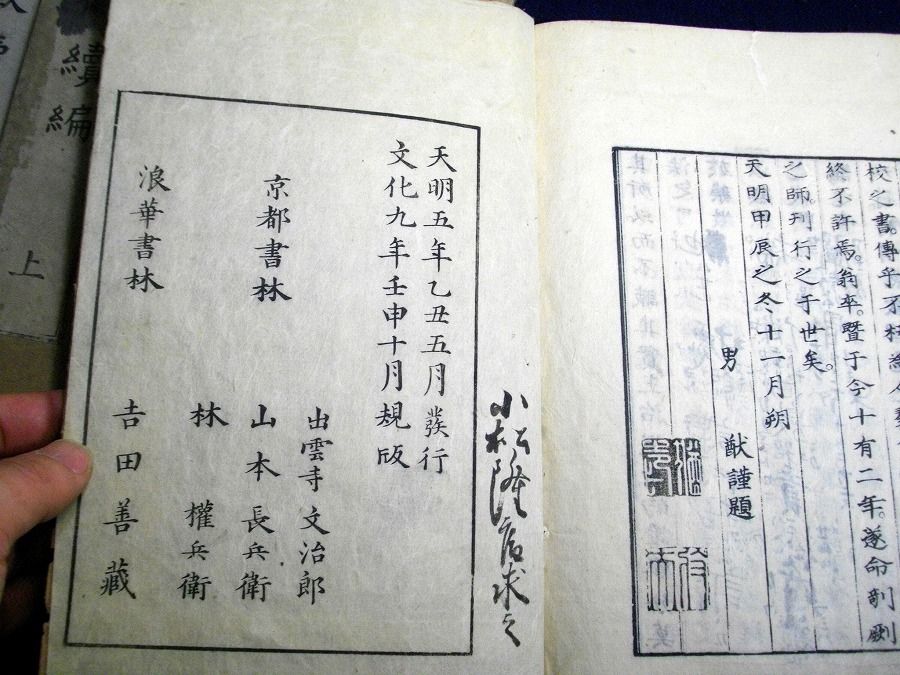 校之書。傳乎不朽
終不許焉。翁卒。曁于今十有二年。遂命剞劂
之師。刊行之于世矣。
天明甲辰之冬十一月朔
男 猷謹題
小松隆求之
天明五年乙丑五月發行
文化九年壬申十月規版
出雲寺 文治郎
京都書林 山本 長兵衛
林 權兵衛
浪華書林 吉田善藏
續編
上